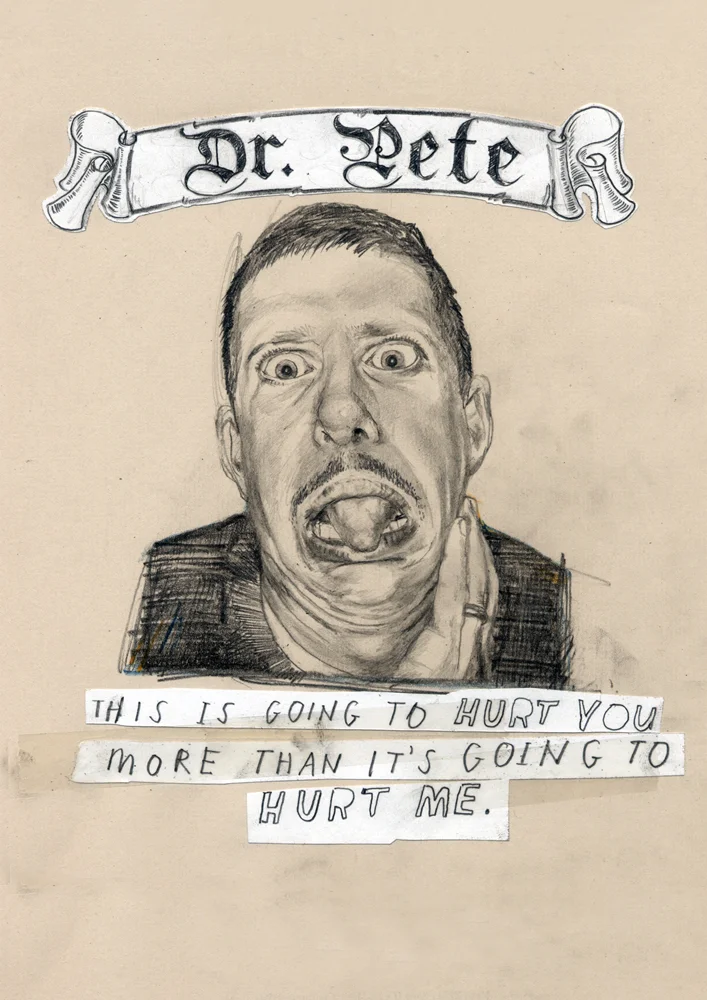 Dr. Pete
THIS IS GOING TO HURT YOU
MORE THAN IT'S GOING TO
HURT ME.